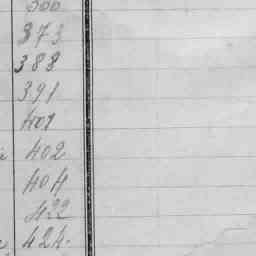 373
388
391
401
402
404
422
424.